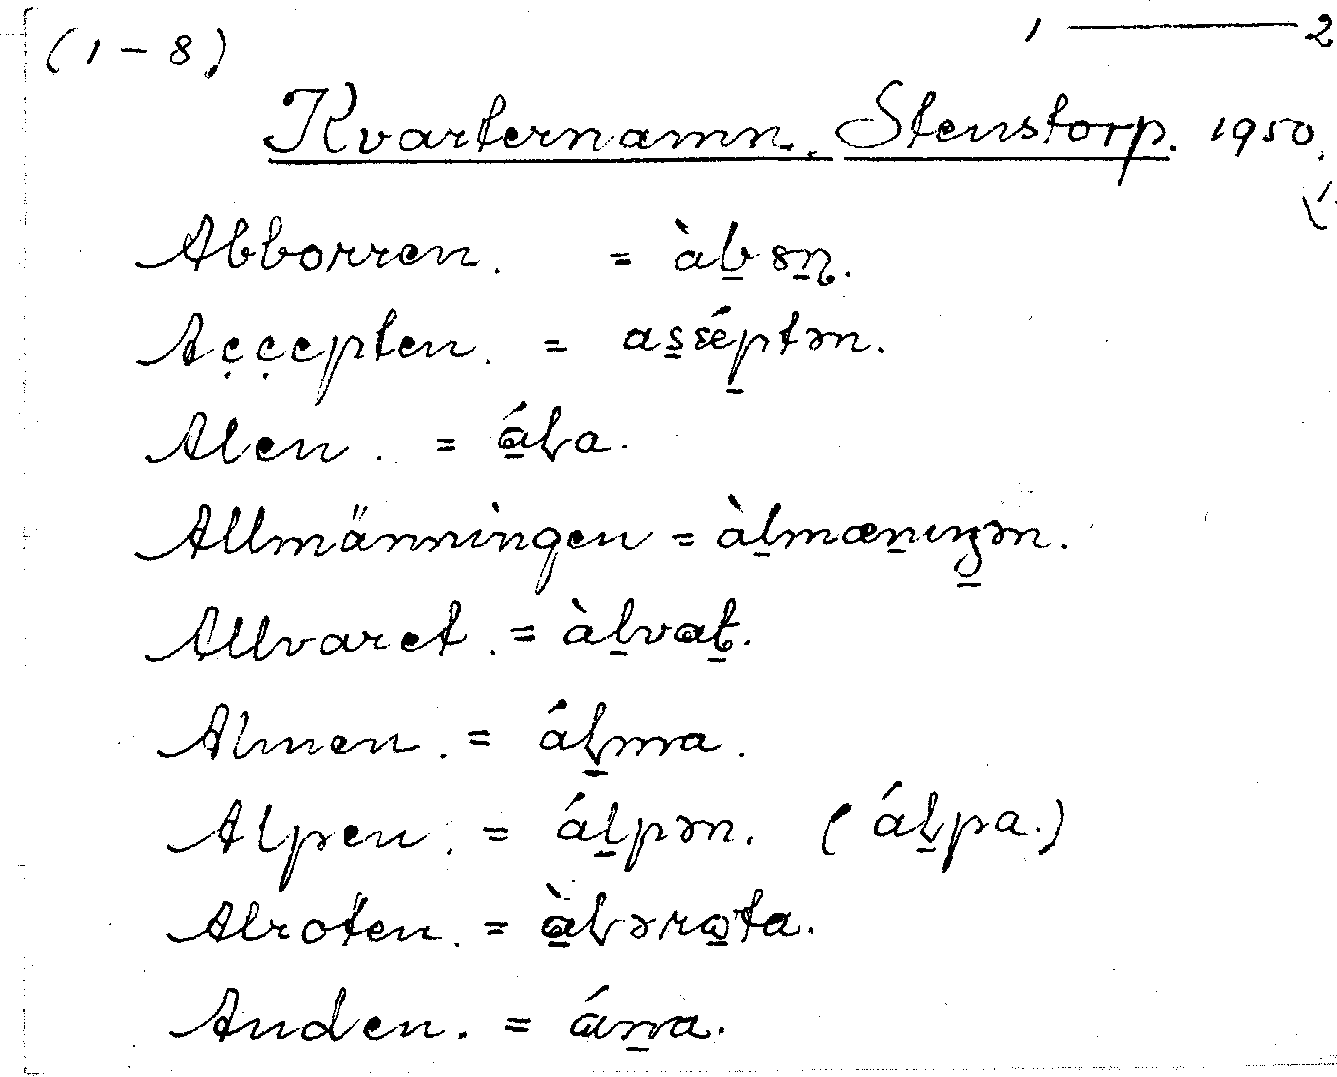 (1-8) 1 — 2
Kvarternamn. Stenstorp. 1950.
Abborren. = àb̲ȣn̲.
Accepten. = as̲sép̲tən.
Alen. = á̲ɫa.
Allmänningen = àl̲mæn̲ıŋ̲ən.
Allvaret. = àl̲vat̲.
Almen. = áɫ̲ma.
Alpen. = ál̲pən. (áɫ̲pa.)
Alroten. = à̲ɫərω̲ta.
Anden. = án̲a.